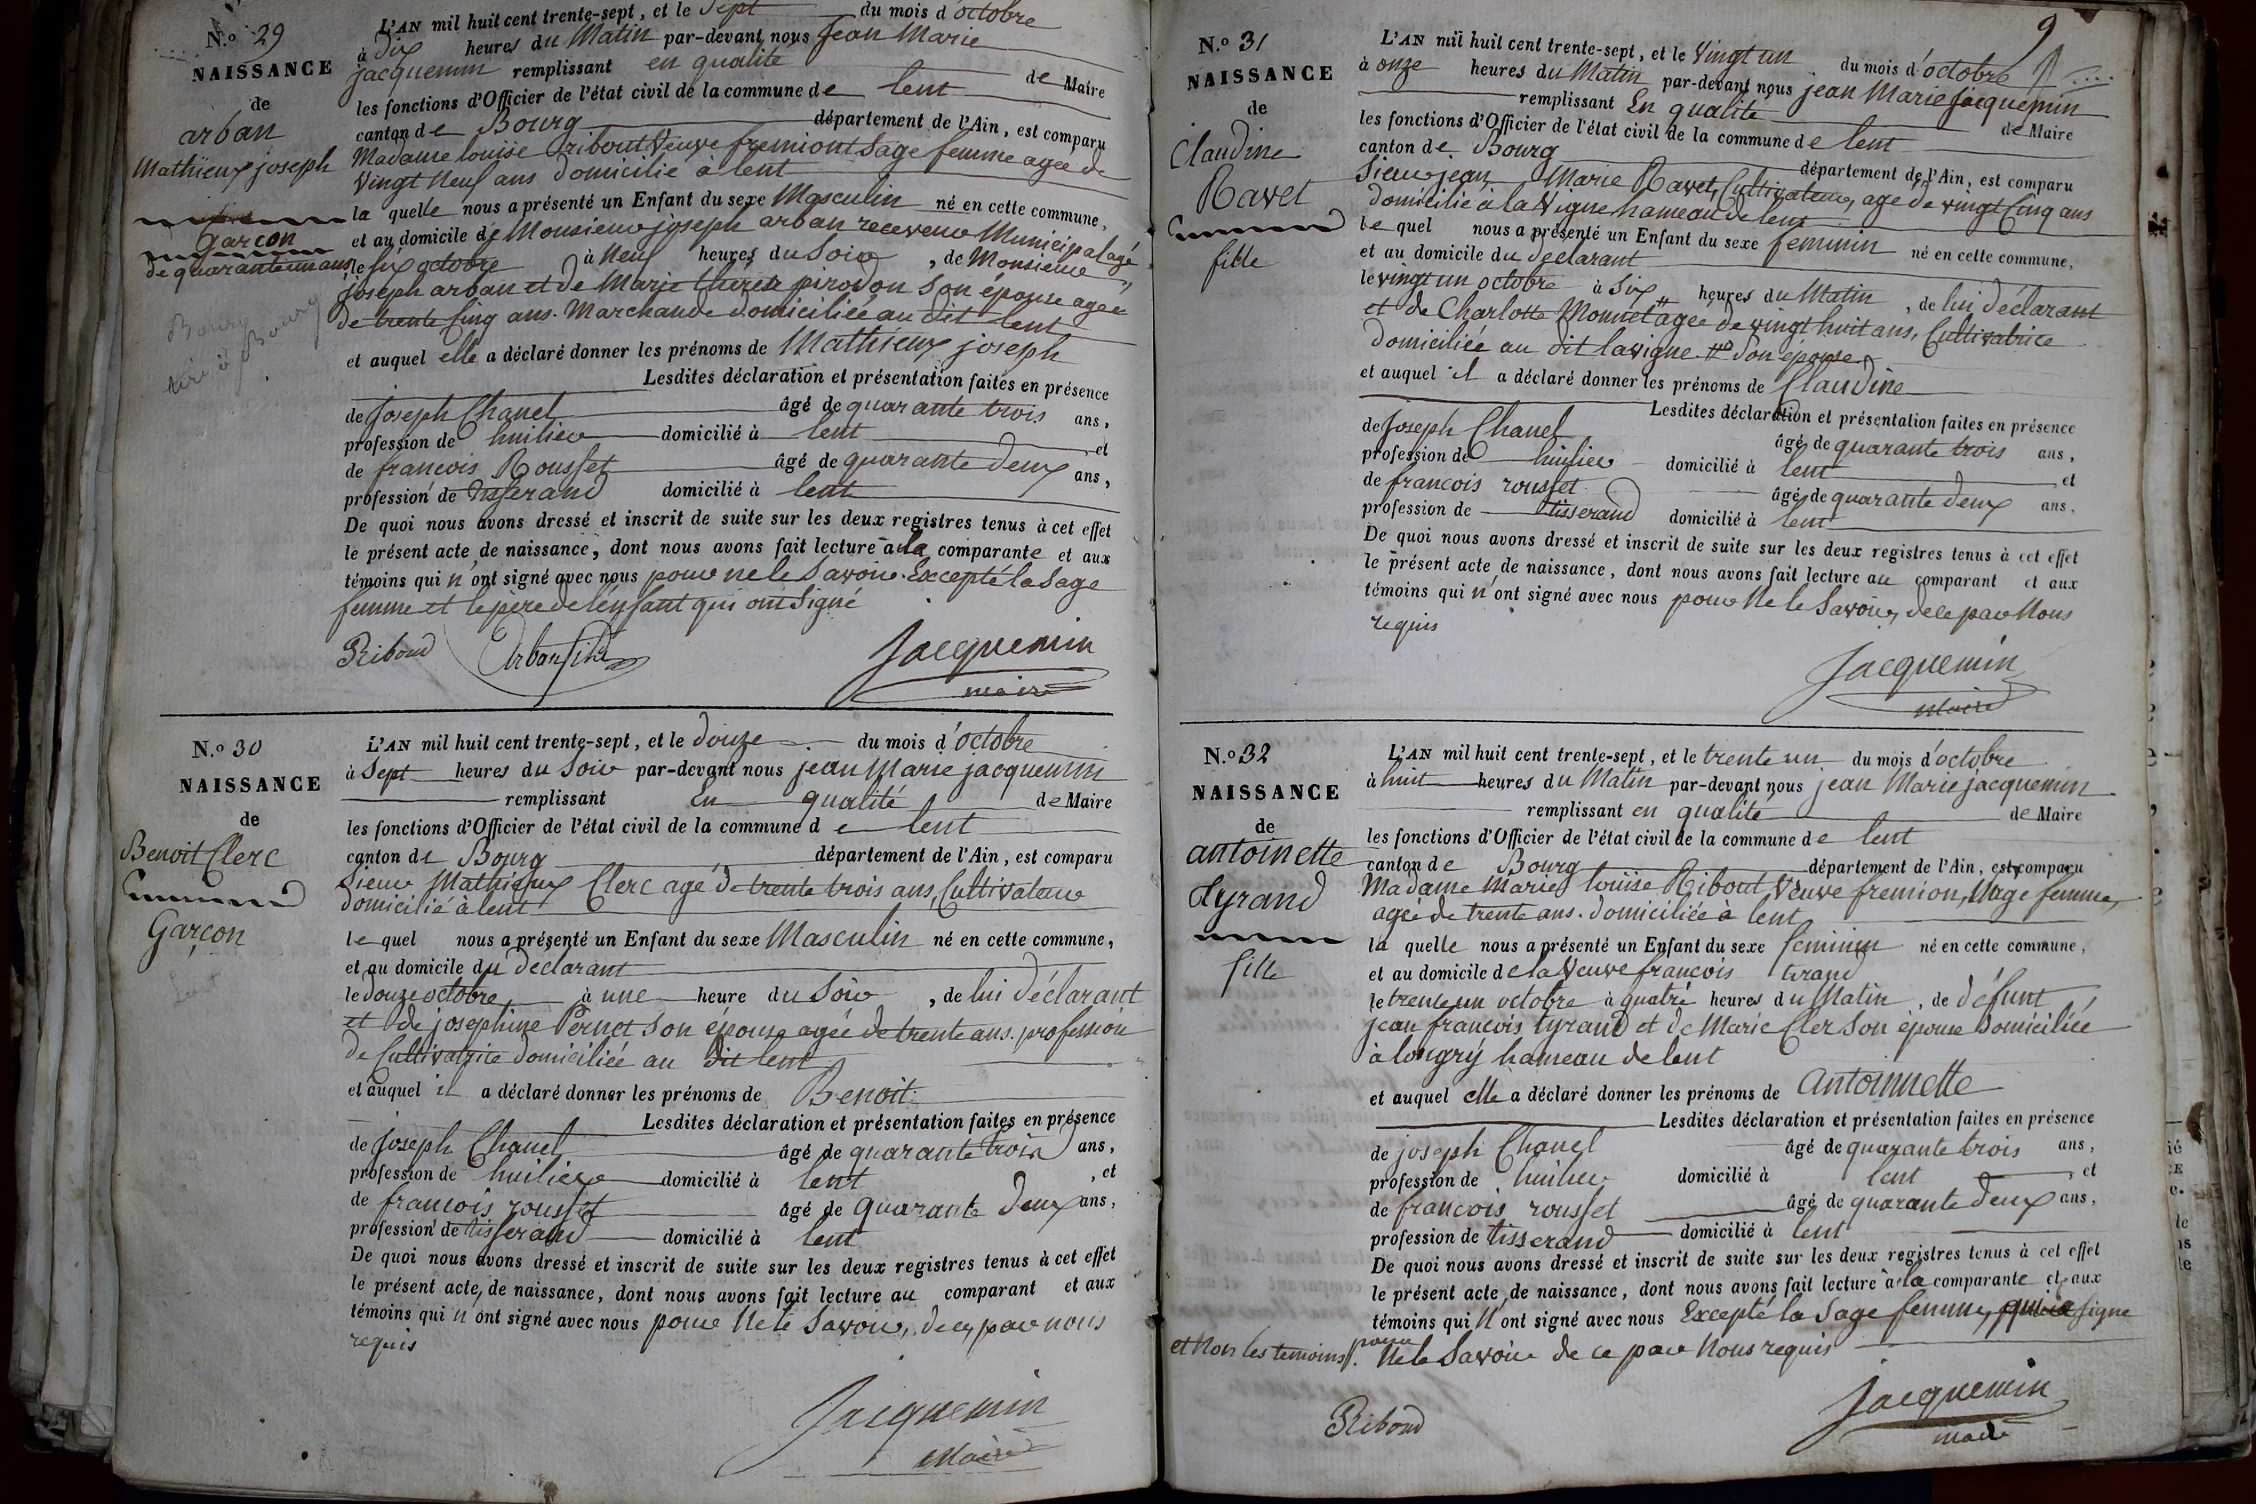 N.º 29
NAISSANCE
de
arban
Mathieux joseph
garcon
de quarante un ans
L'AN mil huit cent trente-sept, et le Sept du mois d'octobre
à dix heures du Matin par-devant nous Jean Marie
jacquemin remplissant en qualité de Maire
les fonctions d'Officier de l'état civil de la commune de lent
canton de Bourg département de l'Ain, est comparu
Madame louise ribout Veuve fremiont Sage femme agee de
Vingt Neuf ans domicilié à lent
la quelle nous a présenté un Enfant du sexe Masculin né en cette commune,
et au domicile de Monsieur joseph arban receveur Municipal agé
le six octobre à Neuf heures du Soir, de Monsieur
joseph arban et de Marie thérèse pirodon Son épouse agée
de trente cinq ans. Marchande domiciliée au dit lent
et auquel elle a déclaré donner les prénoms de Mathieux joseph
Lesdites déclaration et présentation faites en présence
de Joseph Chanel âgé de quarante trois ans,
profession de huilier domicilié à lent, et
de francois Rousset âgé de quarante deux ans,
profession de tisserand domicilié à lent
De quoi nous avons dressé et inscrit de suite sur les deux registres tenus à cet effet
le présent acte de naissance, dont nous avons fait lecture à la comparante et aux
témoins qui n'ont signé avec nous pour ne le Savoir. Excepté la Sage
femme et le père de l'enfant qui ont Signé
Riboud Arban Jacquemin
maire
N.º 30
NAISSANCE
de
Benoit Clerc
Garçon
L'AN mil huit cent trente-sept, et le douze du mois d'octobre
à Sept heures du Soir par-devant nous jean Marie jacquemin
remplissant En qualité de Maire
les fonctions d'Officier de l'état civil de la commune de lent
canton de Bourg département de l'Ain, est comparu
Sieur Mathieux Clerc agé de trente trois ans, Cultivateur
domicilié à lent
le quel nous a présenté un Enfant du sexe Masculin né en cette commune,
et au domicile du déclarant
le douze octobre à une heure du Soir, de lui déclarant
et de josephine Pernet Son épouse agée de trente ans. profession
de Cultivatrice domiciliée au dit lent
et auquel il a déclaré donner les prénoms de Benoit
Lesdites déclaration et présentation faites en présence
de Joseph Chanel âgé de quarante trois ans,
profession de huilier domicilié à lent, et
de francois rousset âgé de quarante deux ans,
profession de tisserand domicilié à lent
De quoi nous avons dressé et inscrit de suite sur les deux registres tenus à cet effet
le présent acte de naissance, dont nous avons fait lecture au comparant et aux
témoins qui n'ont signé avec nous pour Ne le Savoir, de ce par nous
requis
Jacquemin
Maire
9
N.º 31
NAISSANCE
de
Claudine
Ravet
fille
L'AN mil huit cent trente-sept, et le Vingt un du mois d'octobre
à onze heures du Matin par-devant nous jean Marie jacquemin
remplissant En qualité de Maire
les fonctions d'Officier de l'état civil de la commune de lent
canton de Bourg département de l'Ain, est comparu
Sieur jean Marie Ravet, Cultivateur, agé de vingt Cinq ans
domicilié à la Vigne hameau de lent
le quel nous a présenté un Enfant du sexe feminin né en cette commune,
et au domicile du déclarant
le vingt un octobre à Six heures du Matin, de lui déclarant
et de Charlotte Monnet # agée de vingt huit ans, Cultivatrice
domiciliée au dit lavigne. # Son épouse
et auquel il a déclaré donner les prénoms de Claudine
Lesdites déclaration et présentation faites en présence
de Joseph Chanel âgé de quarante trois ans,
profession de huilier domicilié à lent, et
de francois rousset âgé de quarante deux ans,
profession de tisserand domicilié à lent
De quoi nous avons dressé et inscrit de suite sur les deux registres tenus à cet effet
le présent acte de naissance, dont nous avons fait lecture au comparant et aux
témoins qui n'ont signé avec nous pour Ne le Savoir, de ce par Nous
requis
Jacquemin
Maire
N.º 32
NAISSANCE
de
antoinette
tyrand
fille
L'AN mil huit cent trente-sept, et le trente un du mois d'octobre
à huit heures du Matin par-devant nous jean Marie jacquemin
remplissant en qualité de Maire
les fonctions d'Officier de l'état civil de la commune de lent
canton de Bourg département de l'Ain, est comparu
Madame Marie louise Ribout Veuve fremion, Sage femme,
agée de trente ans. domiciliée à lent
la quelle nous a présenté un Enfant du sexe feminin né en cette commune,
et au domicile de la Veuve francois tirand
le trente un octobre à quatre heures du Matin, de défunt
jean francois tyrand et de Marie Cler Son épouse Domiciliée
à longry hameau de lent
et auquel elle a déclaré donner les prénoms de Antoinnette
Lesdites déclaration et présentation faites en présence
de joseph Chanel âgé de quarante trois ans,
profession de huilier domicilié à lent, et
de francois rousset âgé de quarante deux ans,
profession de tisserand domicilié à lent
De quoi nous avons dressé et inscrit de suite sur les deux registres tenus à cet effet
le présent acte de naissance, dont nous avons fait lecture à la comparante et aux
témoins qui N'ont signé avec nous Excepté la Sage femme, qui a signe
et Non les temoins pour Ne le Savoir de ce par Nous requis
Riboud Jacquemin
maire